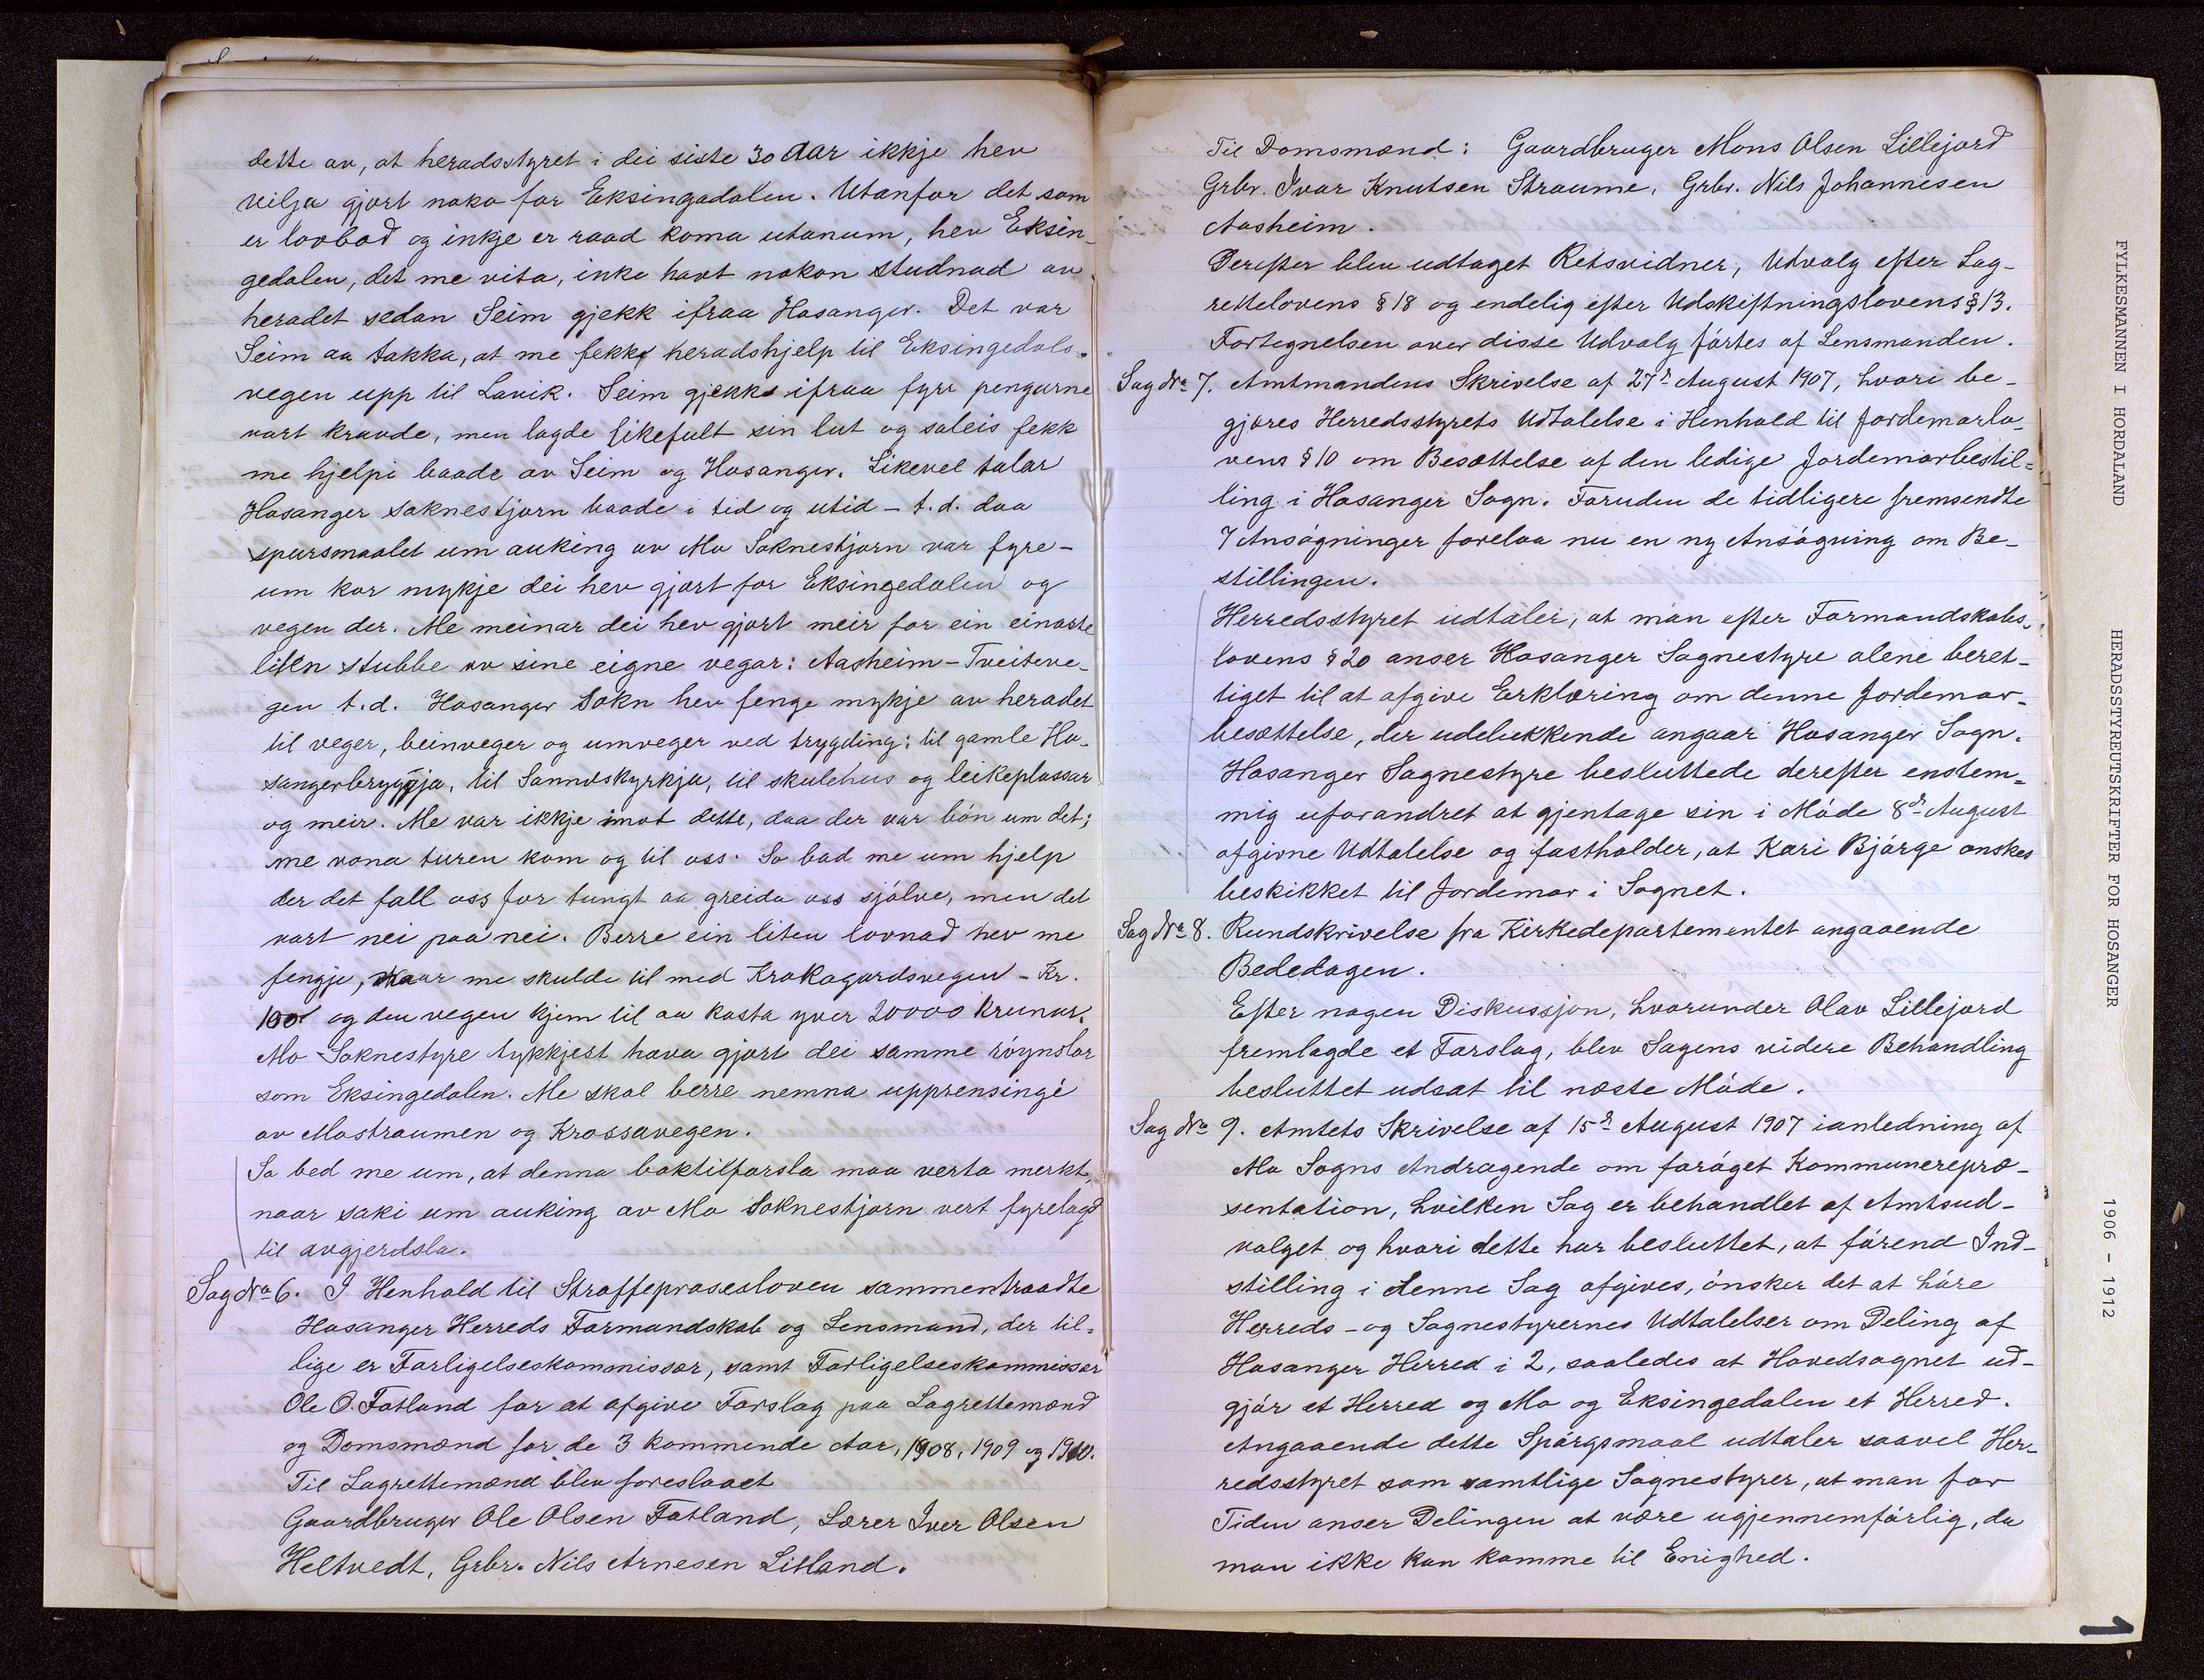 dette av, at heradsstyret i dei siste 30 aar ikkje hev
vilja gjort noko for Eksingadalen. Utanfor det som
er lovbod og inkje er raad koma utanum, hev Eksin-
gedalen, det me vita, inke havt nokon studnad av
heradet sedan Seim gjekk ifraa Hosanger. Det var
Seim aa takka, at me fekk heradshjelp til Eksingedals-
vegen upp til Lavik. Seim gjekk ifraa fyre pengarne
vart kravde, men lagde likefult sin lut og saleis fekk
me hjelpi baade av Seim og Hosanger. Likevel talar
Hosanger soknestjorn baade i tid og utid - t.d. daa
spursmaalet um auking av Mo Soknestjorn var fyre -
um kor mykje dei hev gjort for Eksingedalen og
vegen der. Me meinar dei hev gjort meir for ein einaste
liten stubbe av sine eigne vegar: Aasheim - Tveiteve-
gen t.d. Hosanger Sokn hev fenge mykje av heradet
til veger, beinveger og umveger ved trygding: til gamle Ho-
sangerbryggja, til Sanndskyrkja, til skulehus og leikeplassar
og meir. Me var ikkje imot dette, daa der var bón um det;
me vona turen kom og til oss. So bad me um hjelp
der det fall oss for tungt aa greida oss sjólve, men det
vart nei paa nei. Berre ein liten lovnad hev me
fengje, naar me skulde til med Krokagardsvegen - Kr.
100 og den vegen kjem til aa kosta yver 20000 krunur.
Mo Soknestyre tykkjest hava gjort dei samme róynslor
som Eksingedalen. Me skal berre nemna upprensingi
av Mostraumen og Krossavegen.
So bed me um, at denna baktilfórsla maa verta merkt,
naar saki um auking av Mo Soknestjorn vert fyrelagd
til avgjerdsla.
Sag No 6. I Henhold til Straffeprosesloven sammentraadte
Hosanger Herreds Formandskab og Lensmand, der til-
lige er Forligelseskommissær, samt Forligelseskommissær
Ole O. Fatland for at afgive Forslag paa Lagrettemænd
og Domsmænd for de 3 kommende Aar, 1908, 1909 og 1910.
Til Lagrettemænd blev foreslaaet
Gaardbruger Ole Olsen Fatland, Lærer Iver Olsen
Heltvedt, Grbr. Nils Arnesen Litland.
Til Domsmænd: Gaardbruger Mons Olsen Lillejord
Grbr. Ivar Knutsen Straume, Grbr. Nils Johannesen
Aasheim.
Derefter blev udtaget Retsvidner, Udvalg efter Lag-
rettelovens § 18 og endelig efter Udskiftningslovens § 13.
Fortegnelsen over disse Udvalg fórtes af Lensmanden.
Sag No 7. Amtmandens Skrivelse af 27de August 1907, hvori be-
gjæres Herredsstyrets Udtalelse i Henhold til Jordemorlo-
vens § 10 om Besættelse af den ledige Jordemorbestil-
ling i Hosanger Sogn. Foruden de tidligere fremsendte
7 Ansógninger forelaa nu en ny Ansógning om Be-
stillingen.
Herredsstyret udtaler, at man efter Formandskabs-
lovens § 20 anser Hosanger Sognestyre alene beret-
tiget til at afgive Erklæring om denne Jordemor-
besættelse, der udelukkende angaar Hosanger Sogn.
Hosanger Sognestyre besluttede derefter enstem-
mig uforandret at gjentage sin i Móde 8de August
afgivne Udtalelse og fastholder, at Kari Bjórge ønskes
beskikket til Jordemor i Sognet.
Sag No 8. Rundskrivelse fra Kirkedepartementet angaaende
Bededagen.
Efter nogen Diskussjon, hvorunder Olav Lillejord
fremlagde et Forslag, blev Sagens videre Behandling
besluttet udsat til næste Móde.
Sag No 9. Amtets Skrivelse af 15de August 1907 ianledning af
Mo Sogns Andragende om foróget Kommunerepræ-
sentation, hvilken Sag er behandlet af Amtsud-
valget og hvori dette har besluttet, at fórend Ind-
stilling i denne Sag afgives, ónsker det at hóre
Herreds- og Sognestyrernes Udtalelser om Deling af
Hosanger Herred i 2, saaledes at Hovedsognet ud-
gjór et Herred og Mo og Eksingedalen et Herred.
Angaaende dette Spórgsmaal udtaler saavel Her-
redsstyret som samtlige Sognestyrer, at man for
Tiden anser Delingen at være ugjennemfórlig, da
man ikke kan komme til Enighed.
FYLKESMANNEN I HORDALAND HERADSSTYREUTSKRIFTER FOR HOSANGER 1906 - 1912
1